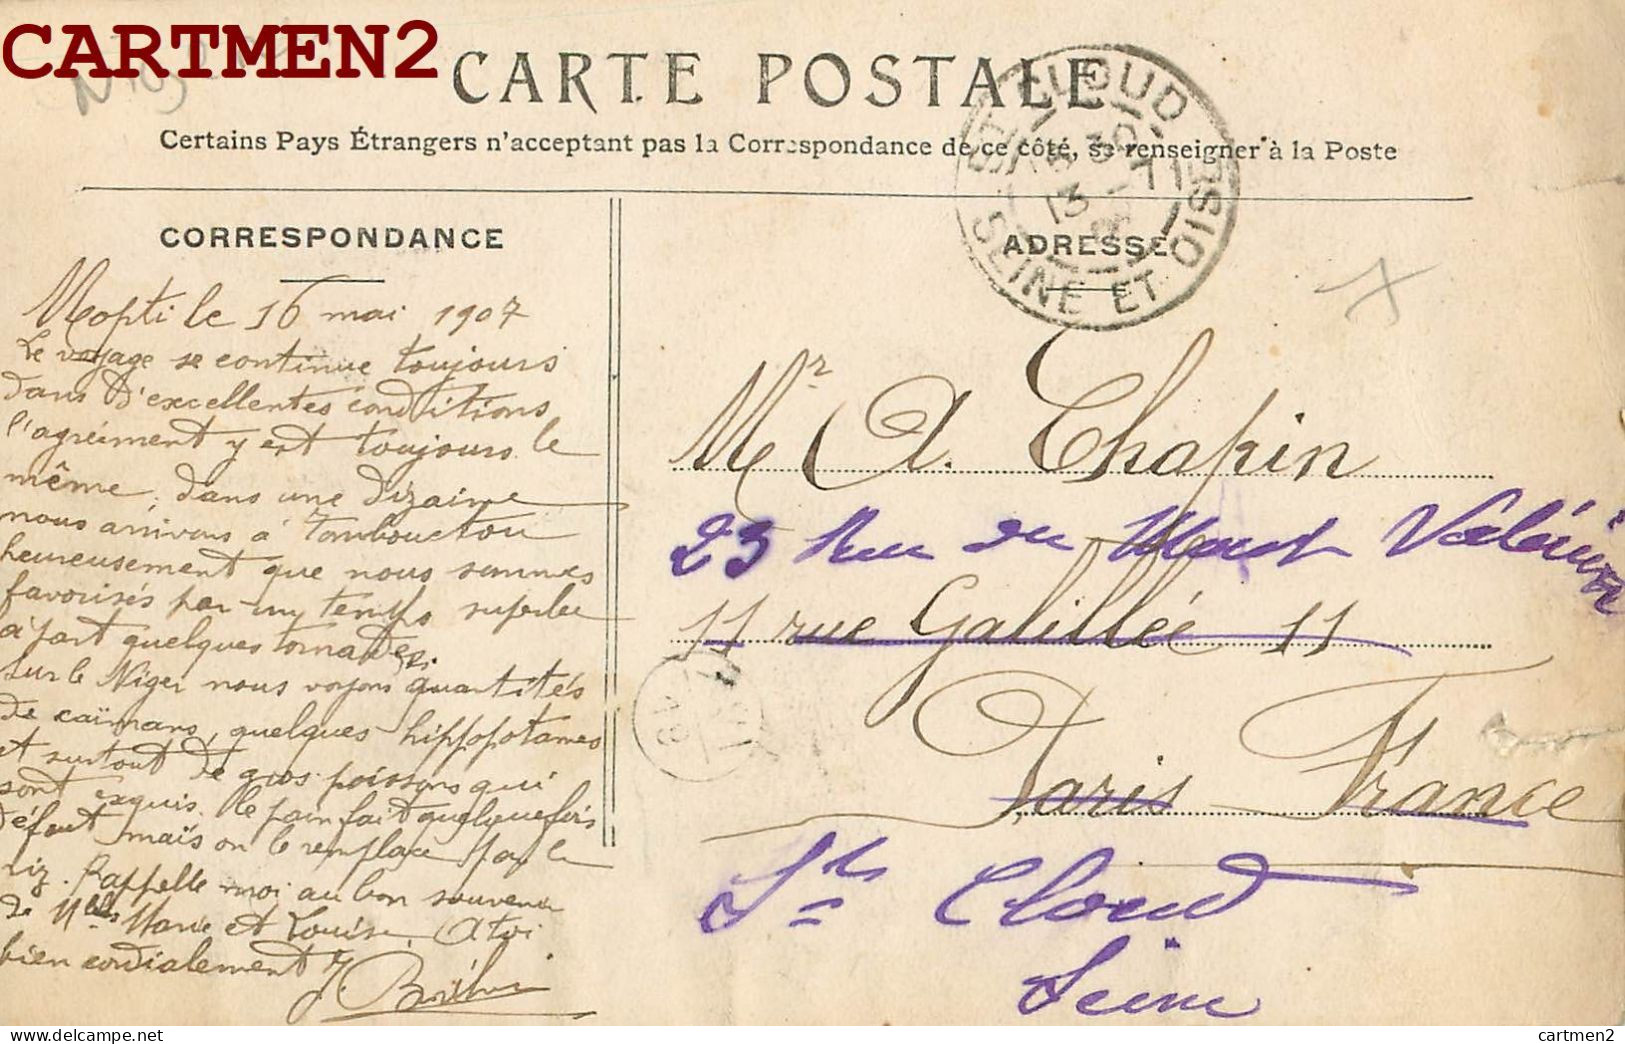 CARTMEN2
CARTE POSTALE
Certains Pays Étrangers n'acceptant pas la Correspondance de ce côté, se renseigner à la Poste
CORRESPONDANCE
Mopti le 16 mai 1907
Le voyage se continue toujours
dans d'excellentes conditions
l'agrément y est toujours le
même, dans une dizaine
nous arrivons à Tombouctou
heureusement que nous sommes
favorisés par un temps superbe
à part quelques tornades.
Sur le Niger nous voyons quantités
de caïmans, quelques hippopotames
et surtout de gros poissons qui
sont exquis. le pain fait quelquefois
défaut maïs on le remplace par le
riz. Rappelle moi au bon souvenir
de Mlles Marie et Louise. A toi
bien cordialement
ADRESSE
ST CLOUD
13
SEINE ET OISE
Mr A. Chapin
23 Rue du Mont Valérien
11 rue Galillée 11
Paris France
St Cloud
Seine
cartmen2